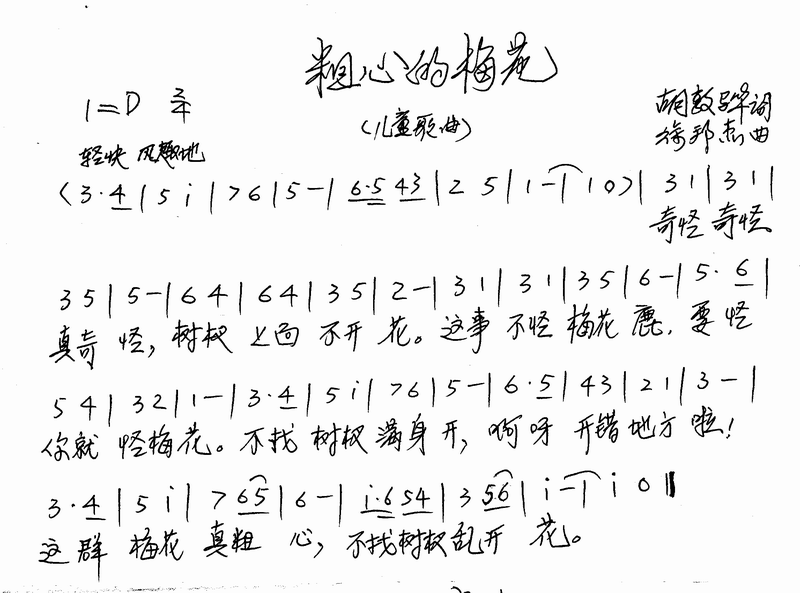 粗心的梅花
1=D 2/4
(儿童歌曲)
胡敦骅词
徐邦杰曲
轻快 风趣地
(3·4|5 i|7 6|5-|6·5 43|2 5|1-|1 0)|3 1|3 1|
奇怪 奇怪
3 5|5-|6 4|6 4|3 5|2-|3 1|3 1|3 5|6-|5·6|
真奇 怪,树杈 上面 不开 花。这事 不怪 梅花 鹿,要怪
5 4|3 2|1-|3·4|5 i|7 6|5-|6·5|4 3|2 1|3-|
你就 怪梅花。不找 树杈 满身 开,啊呀 开错 地方 啦!
3·4|5 i|7 65|6-|i·6 54|3 56|i-|i 0‖
这群 梅花 真粗 心,不找树杈乱开 花。